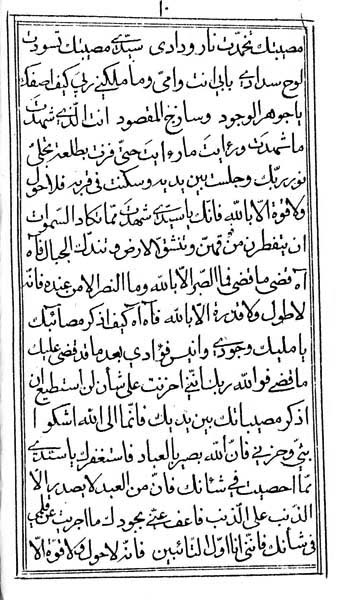 ١٠
مصيبتك تخمدت نار ودادى سيدى مصيبتك تسودت
لوح سدادى بابى انت وامى وما ملكنى ربى كيف اصفك
يا جوهر الوجود وساذج المقصود انت الذى شهدت
ما شهدت ورءايت ما رءايت حتى فزت بطلعة تجلى
نور ربك وجلست بين يديه وسكنت فى قربه فلا حول
ولا قوة الا بالله فانك يا سيدى شهدت مما تكاد السموات
ان يتفطرن من فوقهن وتنشق الارض وتندك الجبال فآه
آه قضى ما قضى فما الصبر الا بالله وما النصر الا من عنده فانه
لا طول ولا قدرة الا بالله فآه آه كيف اذكر مصائبك
يا مليك وجودى وانيس فؤادى بعد ما قد قضى عليك
ما قضى فوالله ربك اننى احزنت على شأن لن استطيع ان
اذكر مصيباتك بين يديك فانما الى الله اشكو
بثى وحزنى فان الله بصير بالعباد فاستغفرك يا سيدى
مما احصيت فى شأنك فان من العبد لا يصدر الا
الذنب على الذنب فاعف عنى بجودك ما اجريت عن قلمى
فى شأنك فاننى انا اول التائبين فانه لا حول ولا قوة الا